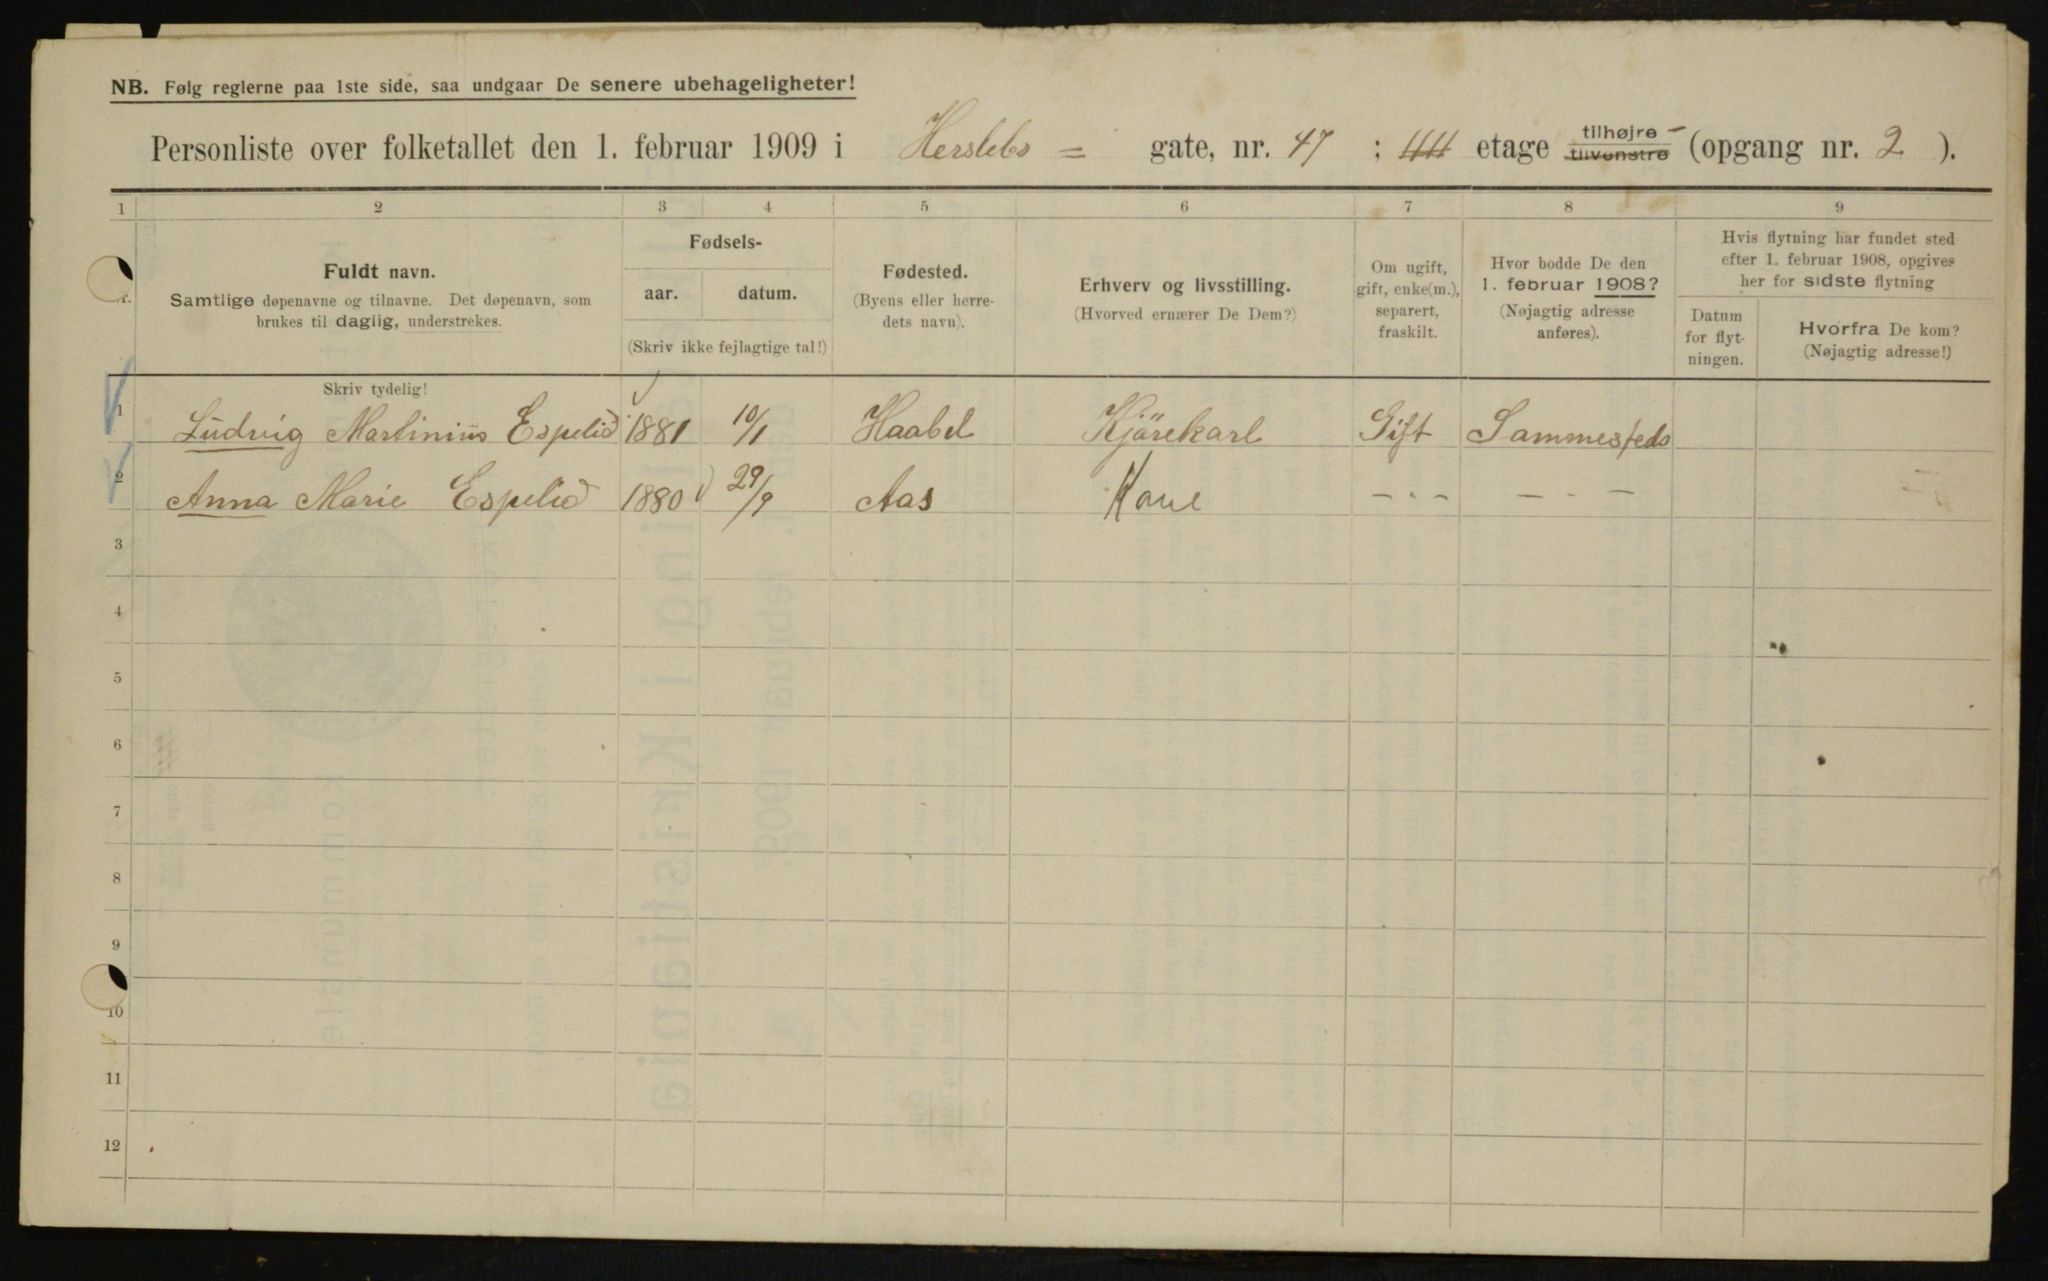 NB. Følg reglerne paa 1ste side, saa undgaar De senere ubehageligheter!
Personliste over folketallet den 1. februar 1909 i Herslebs = gate, nr. 47 ; etage tilhøjre - tilvenstre (opgang nr. 2 ).
1 2 3 4 5 6 7 8 9
Fuldt navn.
Samtlige døpenavne og tilnavne. Det døpenavn, som
brukes til daglig, understrekes.
Fødsels-
aar. datum.
(Skriv ikke fejlagtige tal!)
Fødested.
(Byens eller herre-
dets navn).
Erhverv og livsstilling.
(Hvorved ernærer De Dem?)
Om ugift,
gift, enke(m.),
separert,
fraskilt.
Hvor bodde De den
1. februar 1908?
(Nøjagtig adresse
anføres).
Hvis flytning har fundet sted
efter 1. februar 1908, opgives
her for sidste flytning
Datum
for flyt-
ningen.
Hvorfra De kom?
(Nøjagtig adresse!)
Skriv tydelig!
1 Ludvig Martinius Espelid 1881 10/1 Haabøl Kjörekarl Gift Sammesteds
2 Anna Marie Espelid 1880 29/9 Aas Kone - · - - · -
3
4
5
6
7
8
9
10
11
12